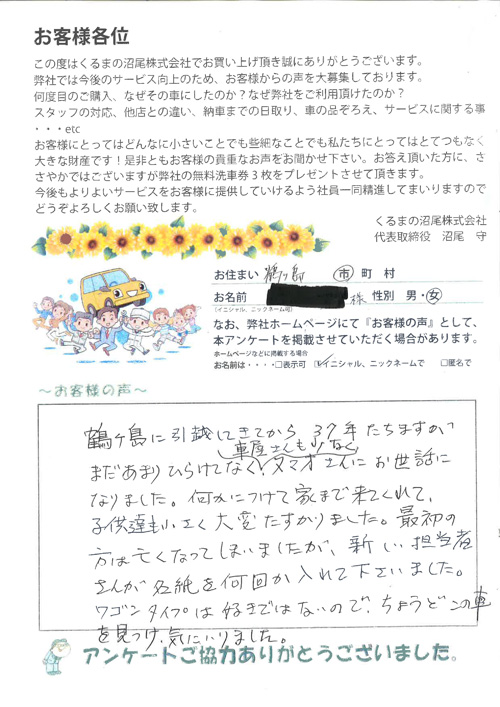 お客様各位
この度はくるまの沼尾株式会社でお買い上げ頂き誠にありがとうございます。
弊社では今後のサービス向上のため、お客様からの声を大募集しております。
何度目のご購入、なぜその車にしたのか？なぜ弊社をご利用頂けたのか？
スタッフの対応、他店との違い、納車までの日取り、車の品ぞろえ、サービスに関する事
・・・etc
お客様にとってはどんなに小さいことでも些細なことでも私たちにとってはとてつもなく
大きな財産です！是非ともお客様の貴重なお声をお聞かせ下さい。お答え頂いた方に、さ
さやかではございますが弊社の無料洗車券３枚をプレゼントさせて頂きます。
今後もよりよいサービスをお客様に提供していけるよう社員一同精進してまいりますので
どうぞよろしくお願い致します。
くるまの沼尾株式会社
代表取締役　沼尾　守
お住まい 鶴ヶ島 市 町 村
お名前 様 性別 男・女
（イニシャル、ニックネーム可）
なお、弊社ホームページにて『お客様の声』として、
本アンケートを掲載させていただく場合があります。
ホームページなどに掲載する場合
お名前は・・・・□表示可 ☑イニシャル、ニックネームで □匿名で
～お客様の声～
鶴ヶ島に引越してきてから 37年たちますが
車屋さんも少なく
まだあまりひらけてなく、ヌマオさんにお世話に
なりました。何かにつけて家まで来てくれて、
子供達も小さく大変たすかりました。最初の
方は亡くなってしまいましたが、新しい担当者
さんが名紙を何回か入れて下さいました。
ワゴンタイプは好きではないので、ちょうどこの車
を見つけ、気にいりました。
アンケートご協力ありがとうございました。